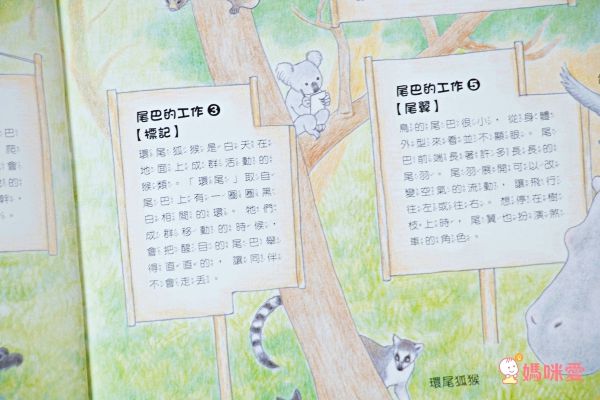 巴
爬
會
的
幹，
。
尾巴的工作❸
【標記】
環尾狐猴是白天在
地面上成群活動的
猴類。「環尾」取自
尾巴上有一圈圈黑
白相間的環。牠們
成群移動的時候，
會把醒目的尾巴舉
得直直的，讓同伴
不會走丟。
尾巴的工作❺
【尾翼】
鳥的尾巴很小，從身體
外型來看並不顯眼。尾
巴前端長著許多長長的
尾羽。尾羽展開可以改
變空氣的流動，讓飛行
往左或往右。想停在樹
枝上時，尾翼也扮演煞
車的角色。
環尾狐猴
媽咪愛